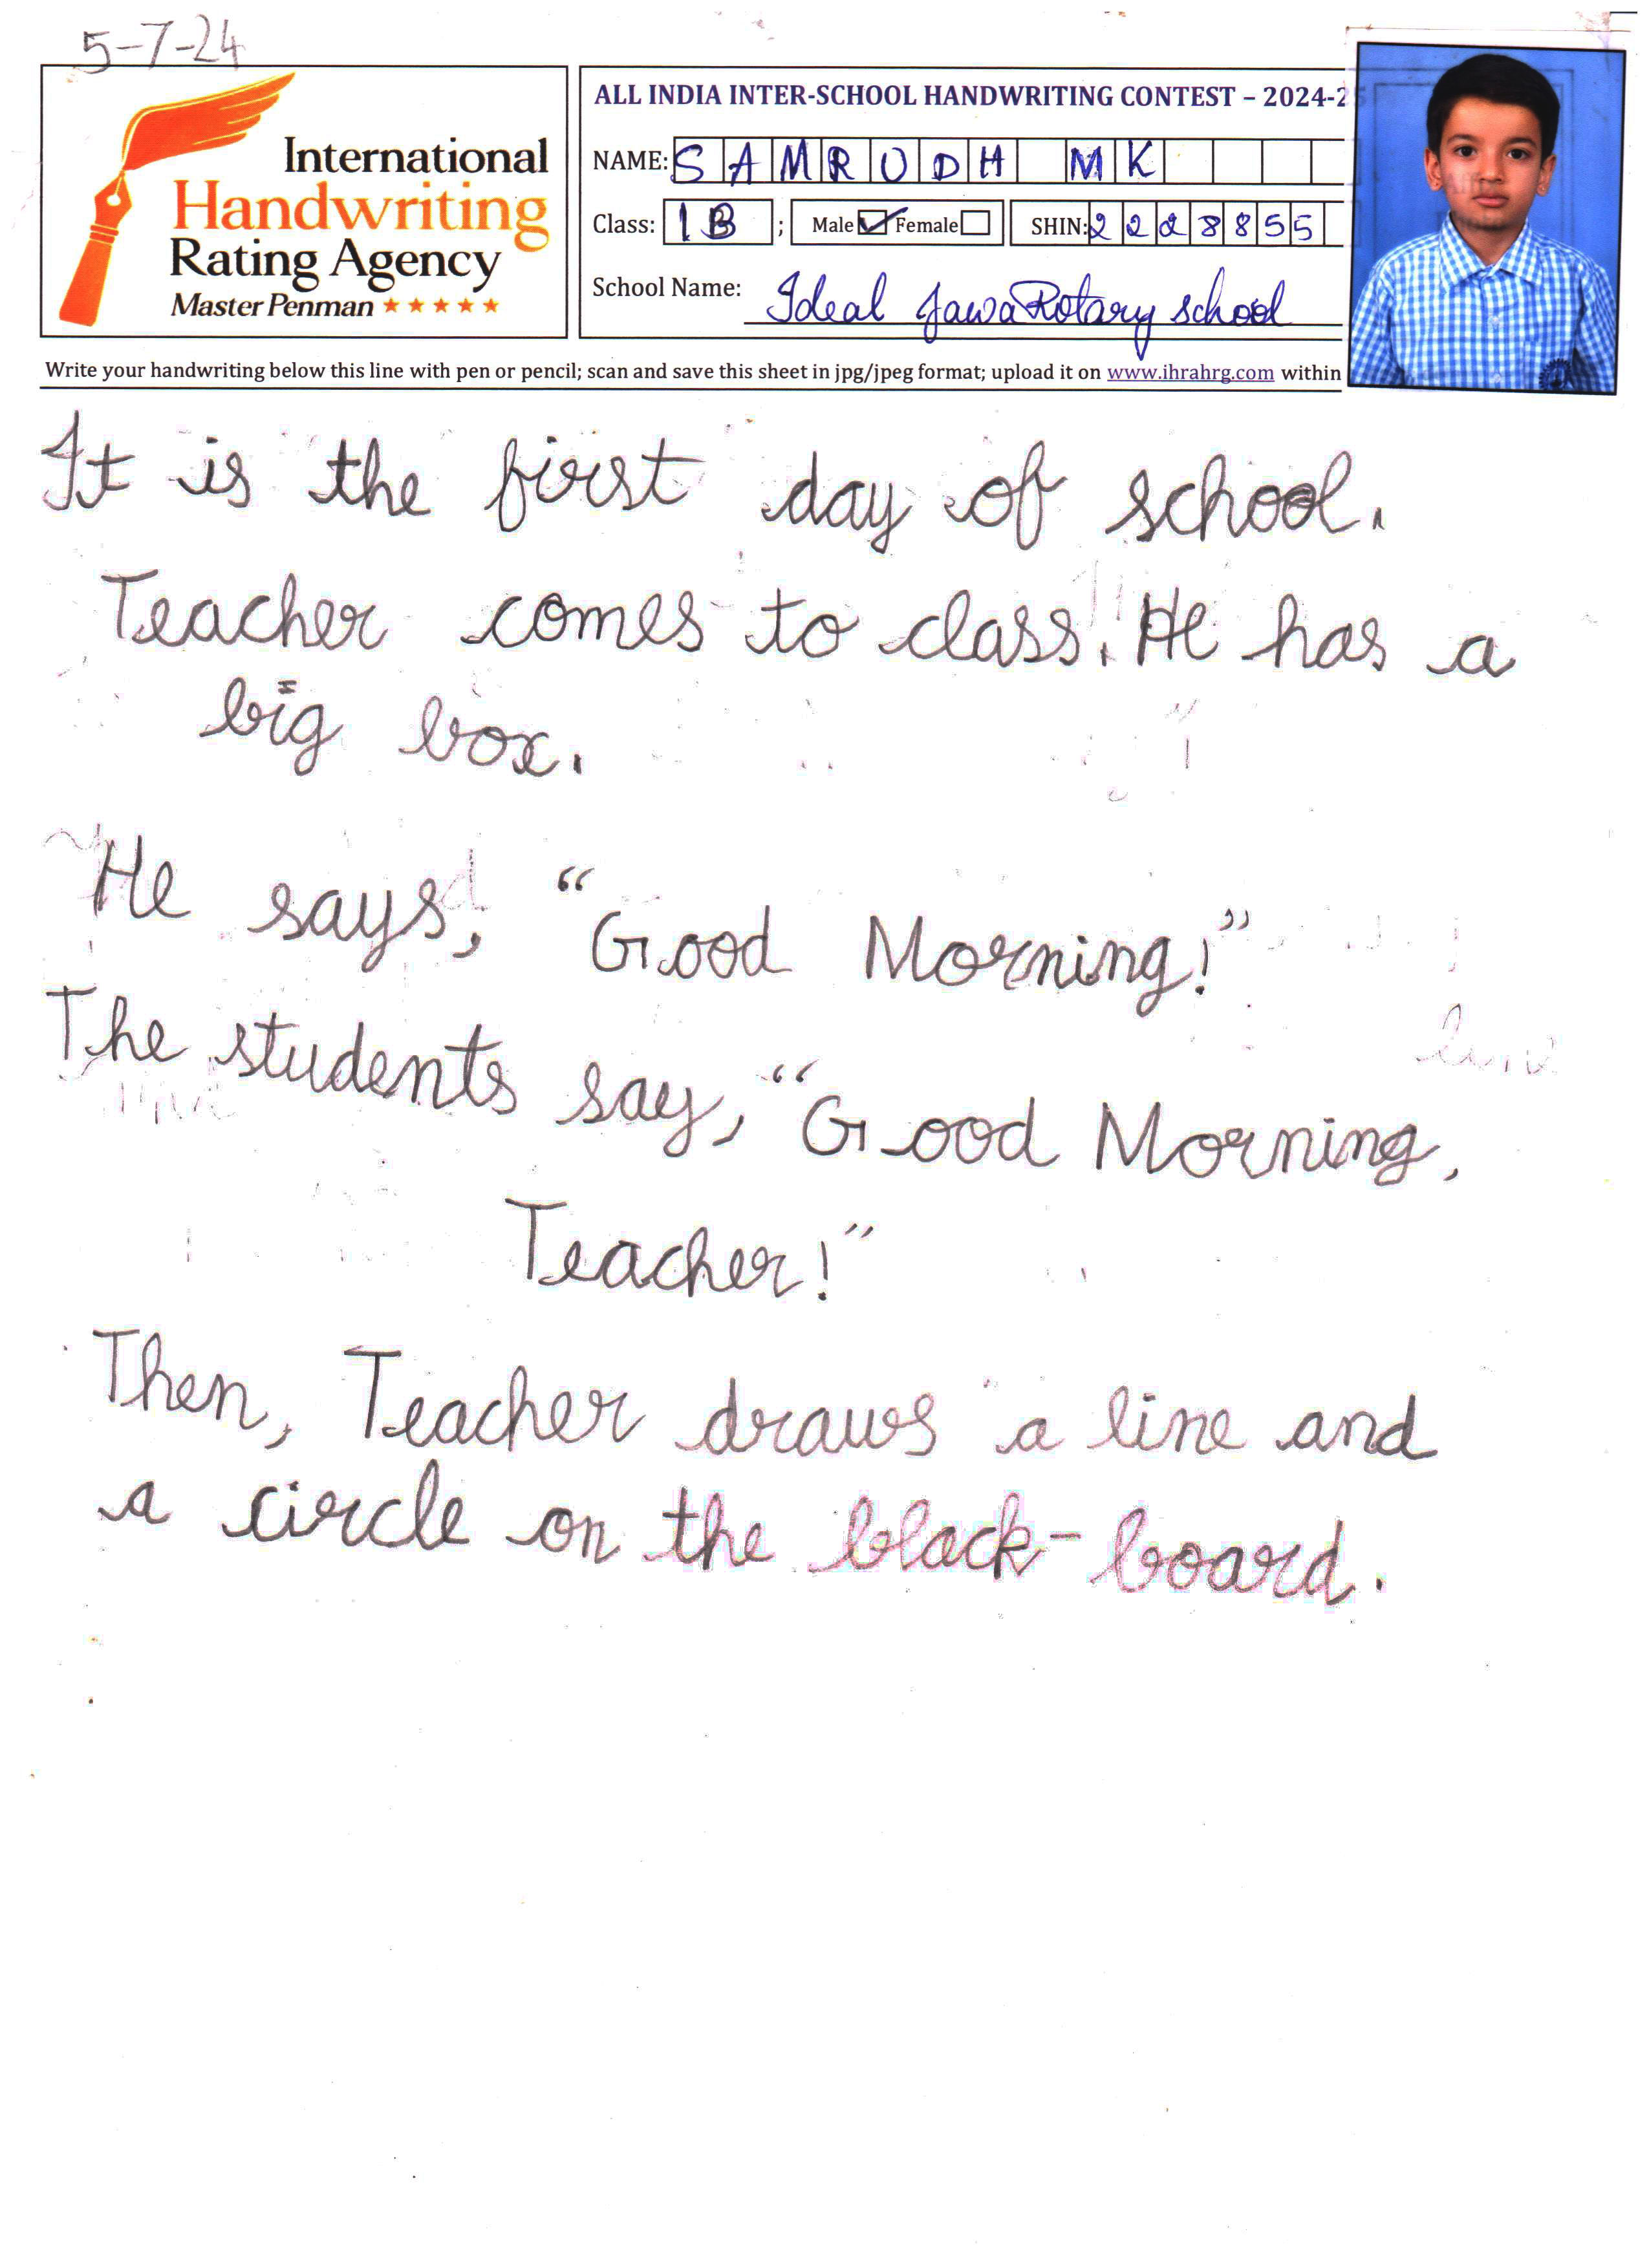 5-7-24
International
Handwriting
Rating Agency
Master Penman
ALL INDIA INTER-SCHOOL HANDWRITING CONTEST – 2024-2
NAME: SAMRUDH MK
Class: 1B ; Male Female SHIN: 2228855
School Name: Ideal Jawa Rotary school
Write your handwriting below this line with pen or pencil; scan and save this sheet in jpg/jpeg format; upload it on www.ihrahrg.com within
It is the first day of school.
Teacher comes to class. He has a
big box.
He says, “Good Morning!”
The students say, “Good Morning,
Teacher!”
Then, Teacher draws a line and
a circle on the black-board.